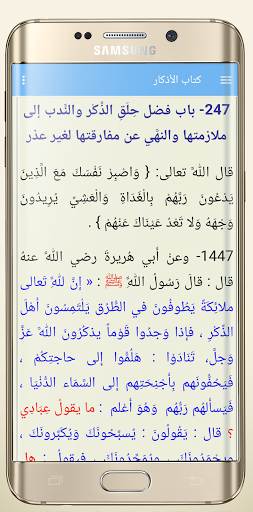 SAMSUNG
كتاب الأذكار
247- باب فضل حِلَقِ الذِّكْر والنَّدب إلى
ملازمتها والنهَّي عن مفارقتها لغير عذر
قال اللهَّ تعالى: { وَاصْبِرْ نَفْسَكَ مَعَ الَّذِينَ
يَدْعُونَ رَبَّهُمْ بِالْغَدَاةِ وَالْعَشِيِّ يُرِيدُونَ
وَجْهَهُ وَلَا تَعْدُ عَيْنَاكَ عَنْهُمْ } .
1447- وعنْ أبي هُريرةَ رضي اللهَّ عنهُ
قال : قالَ رَسُولُ اللهَّ ﷺ : « إنَّ للهَّ تَعالى
ملائِكَةً يَطُوفُونَ في الطُّرُق يلْتَمِسُونَ أهْلَ
الذِّكْرِ ، فإذا وَجدُوا قَوْماً يذكُرُونَ اللهَّ عَزَّ
وَجلَّ ، تَنَادَوْا : هَلُمُّوا إلى حاجتِكُمْ ،
فَيَحُفُّونَهم بِأجْنِحَتِهم إلى السَّمَاء الدُّنْيَا ،
فَيَسألهُم رَبُّهُم وَهُوَ أعْلم : ما يقولُ عِبَادِي
؟ قال : يَقُولُونَ : يُسبِّحُونَكَ ويُكبِّرُونَكَ ،
ويحْمَدُونَكَ ، ويُمَجِّدُونَكَ ، فيقولُ : هل